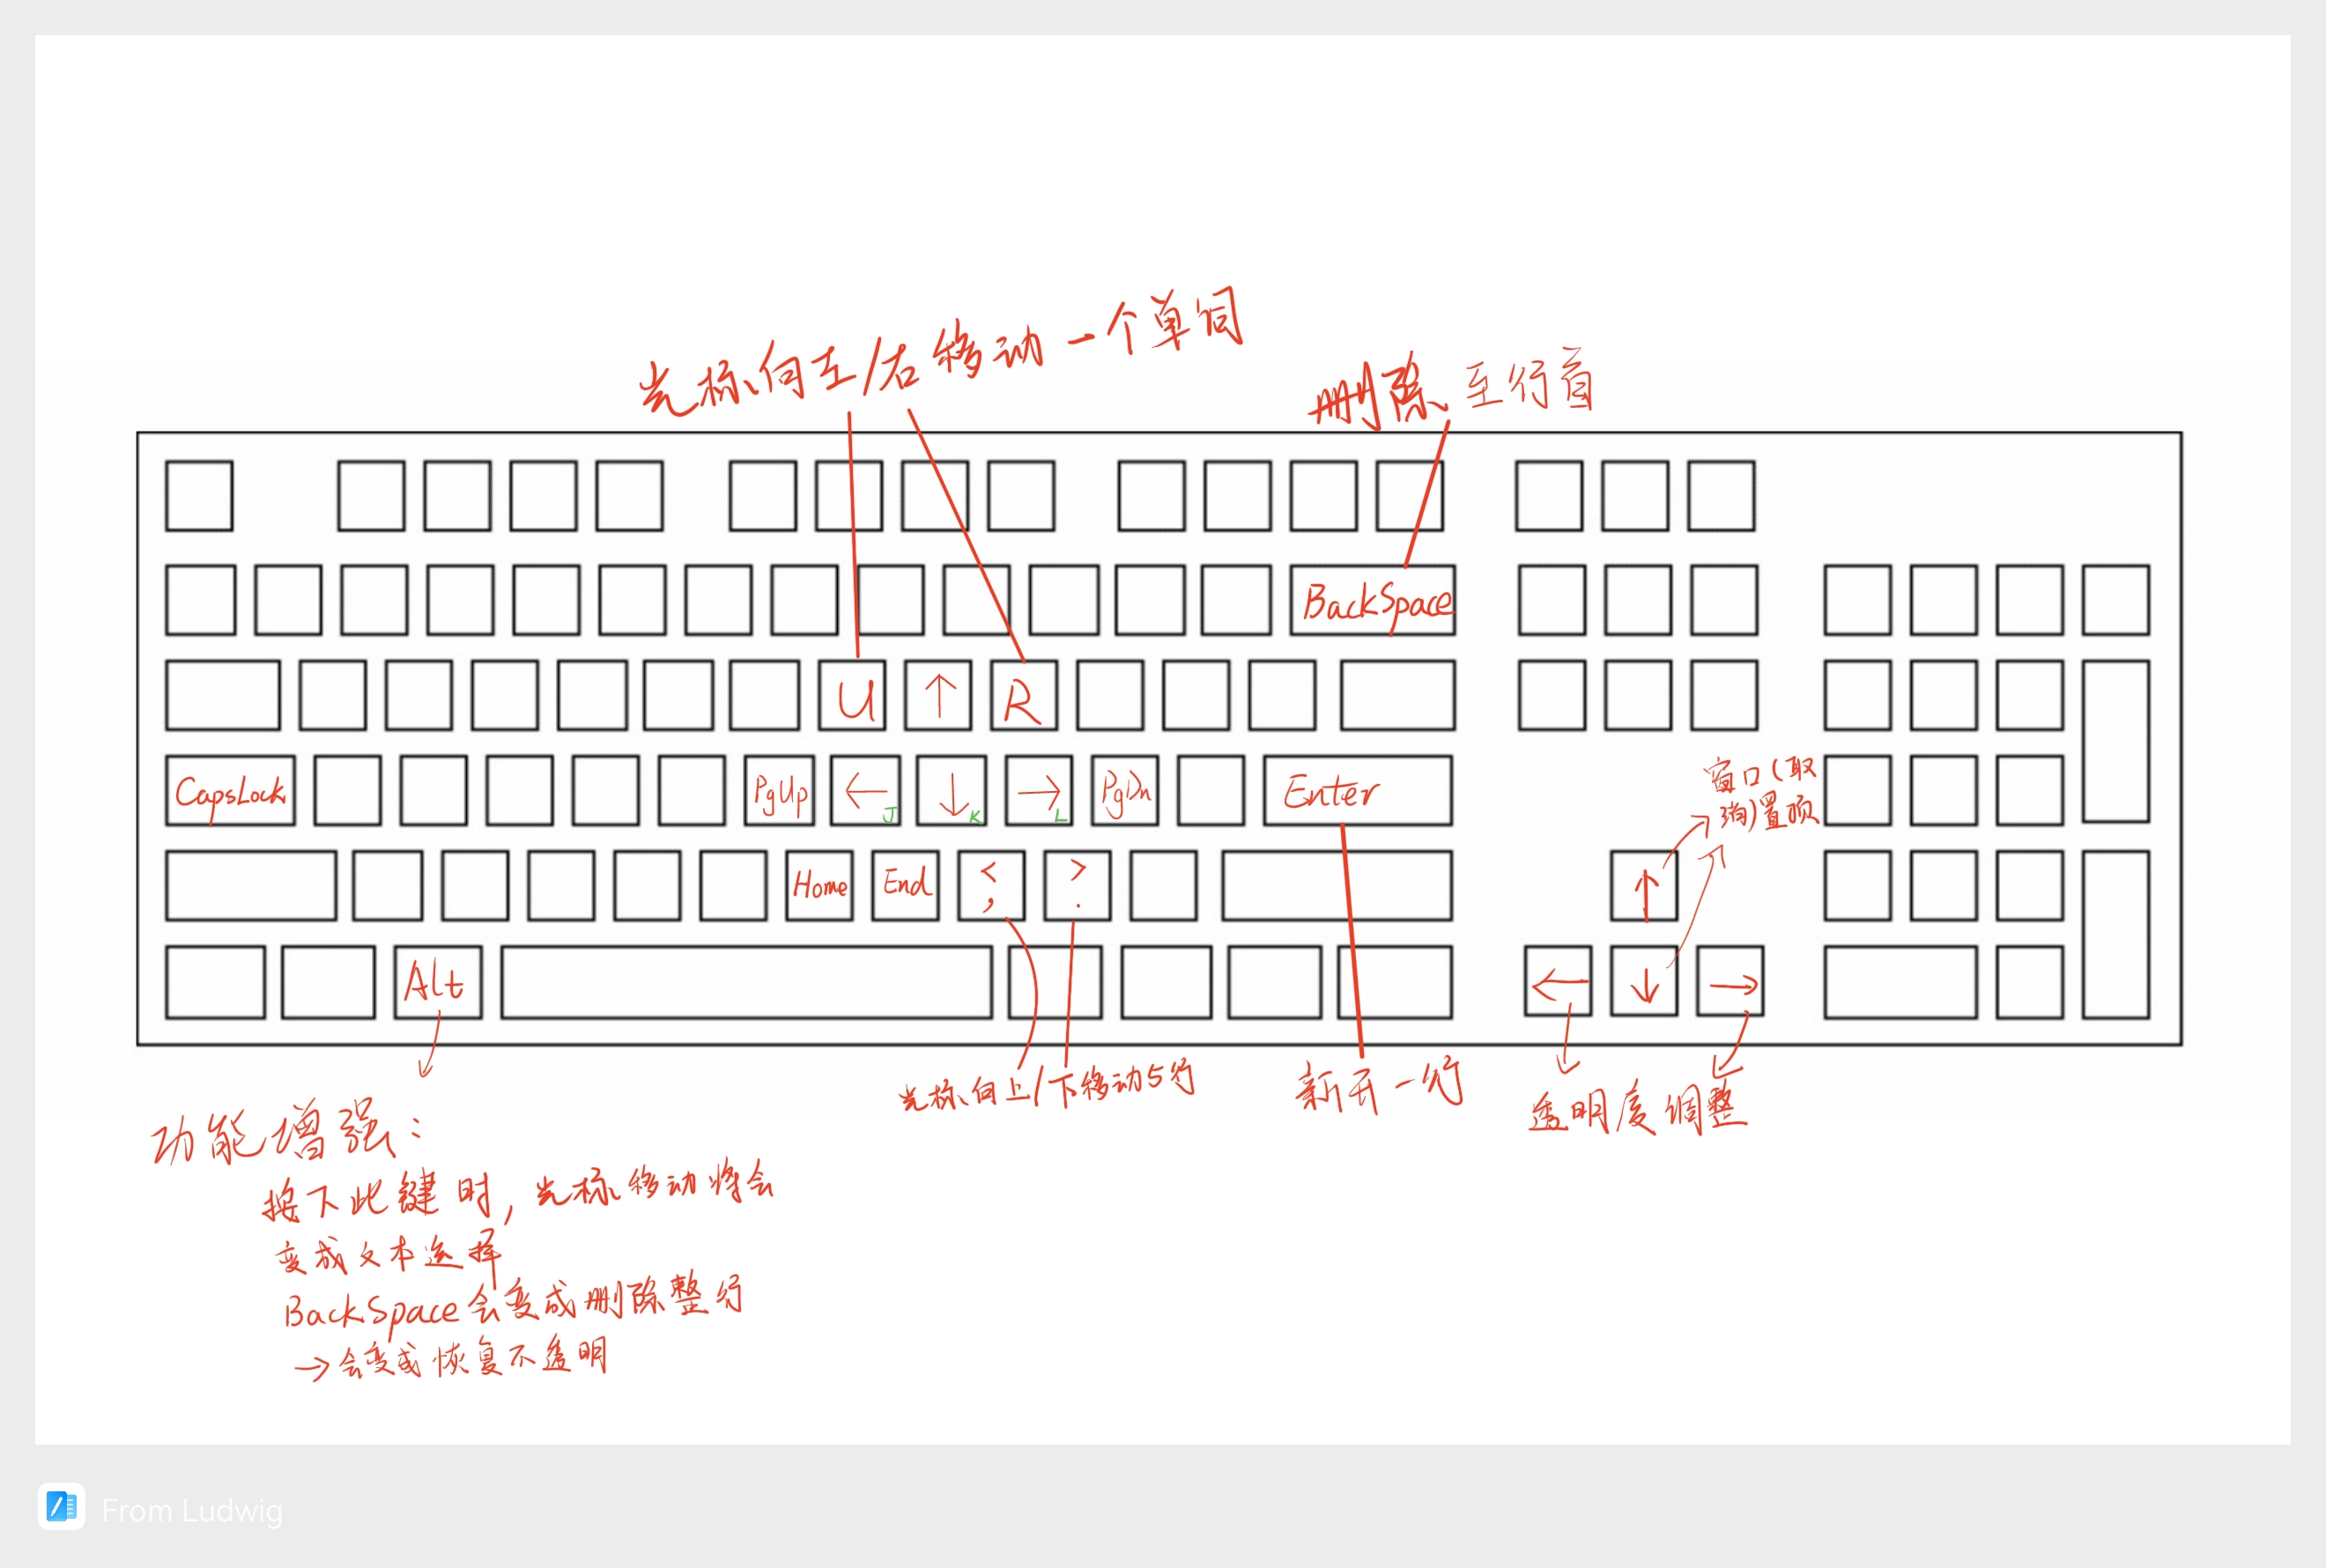 光标向左/右移动一个单词
删除至行首
BackSpace
U ↑ R
CapsLock PgUp ← J ↓ K → L PgDn Enter
窗口(取
消)置顶
Home End < , > . ↑
Alt ← ↓ →
光标向上/下移动5行
新开一行
透明度调整
功能增强：
按下此键时，光标移动将会
变成文本选择
BackSpace会变成删除整行
→会变成恢复不透明
From Ludwig